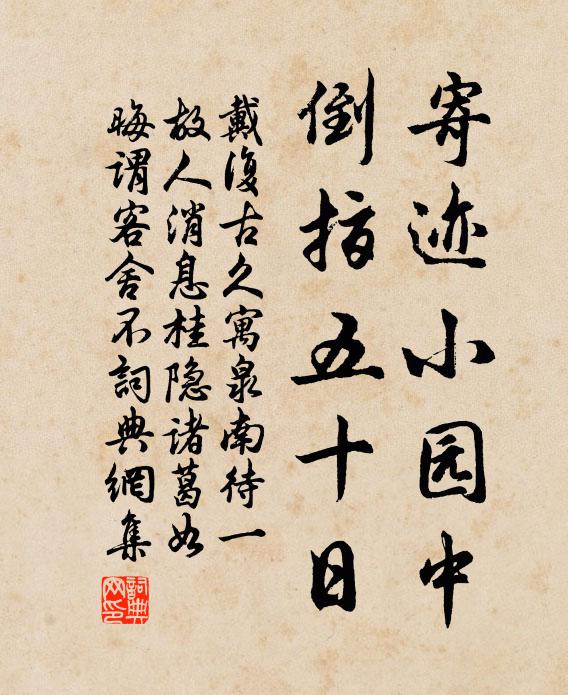 寄迹小园中
倒指五十日
戴復古久寓泉南待一
故人消息桂隐诸葛如
晦谓客舍不詞典網集
詞典网印